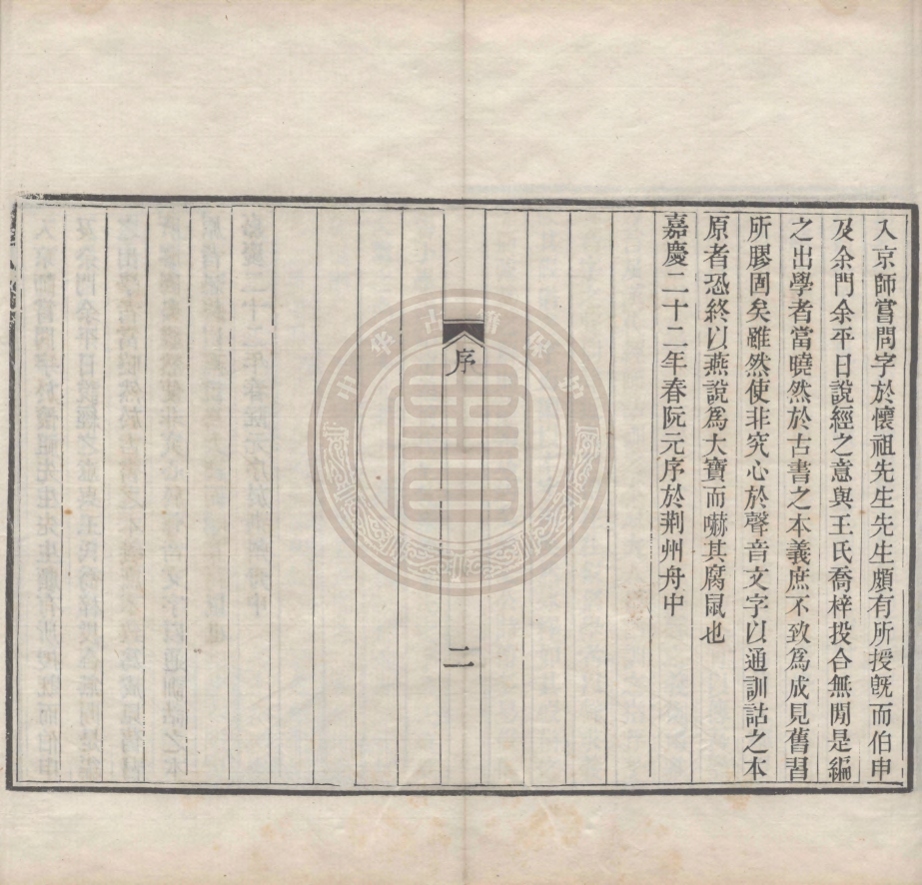 入京師嘗問字於懷祖先生先生頗有所授旣而伯申
及余門余平日說經之意與王氏喬梓投合無閒是編
之出學者當曉然於古書之本義庶不致爲成見舊習
所膠固矣雖然使非究心於聲音文字以通訓詁之本
原者恐終以燕說爲大寶而嚇其腐鼠也
嘉慶二十二年春阮元序於荆州舟中
序
二